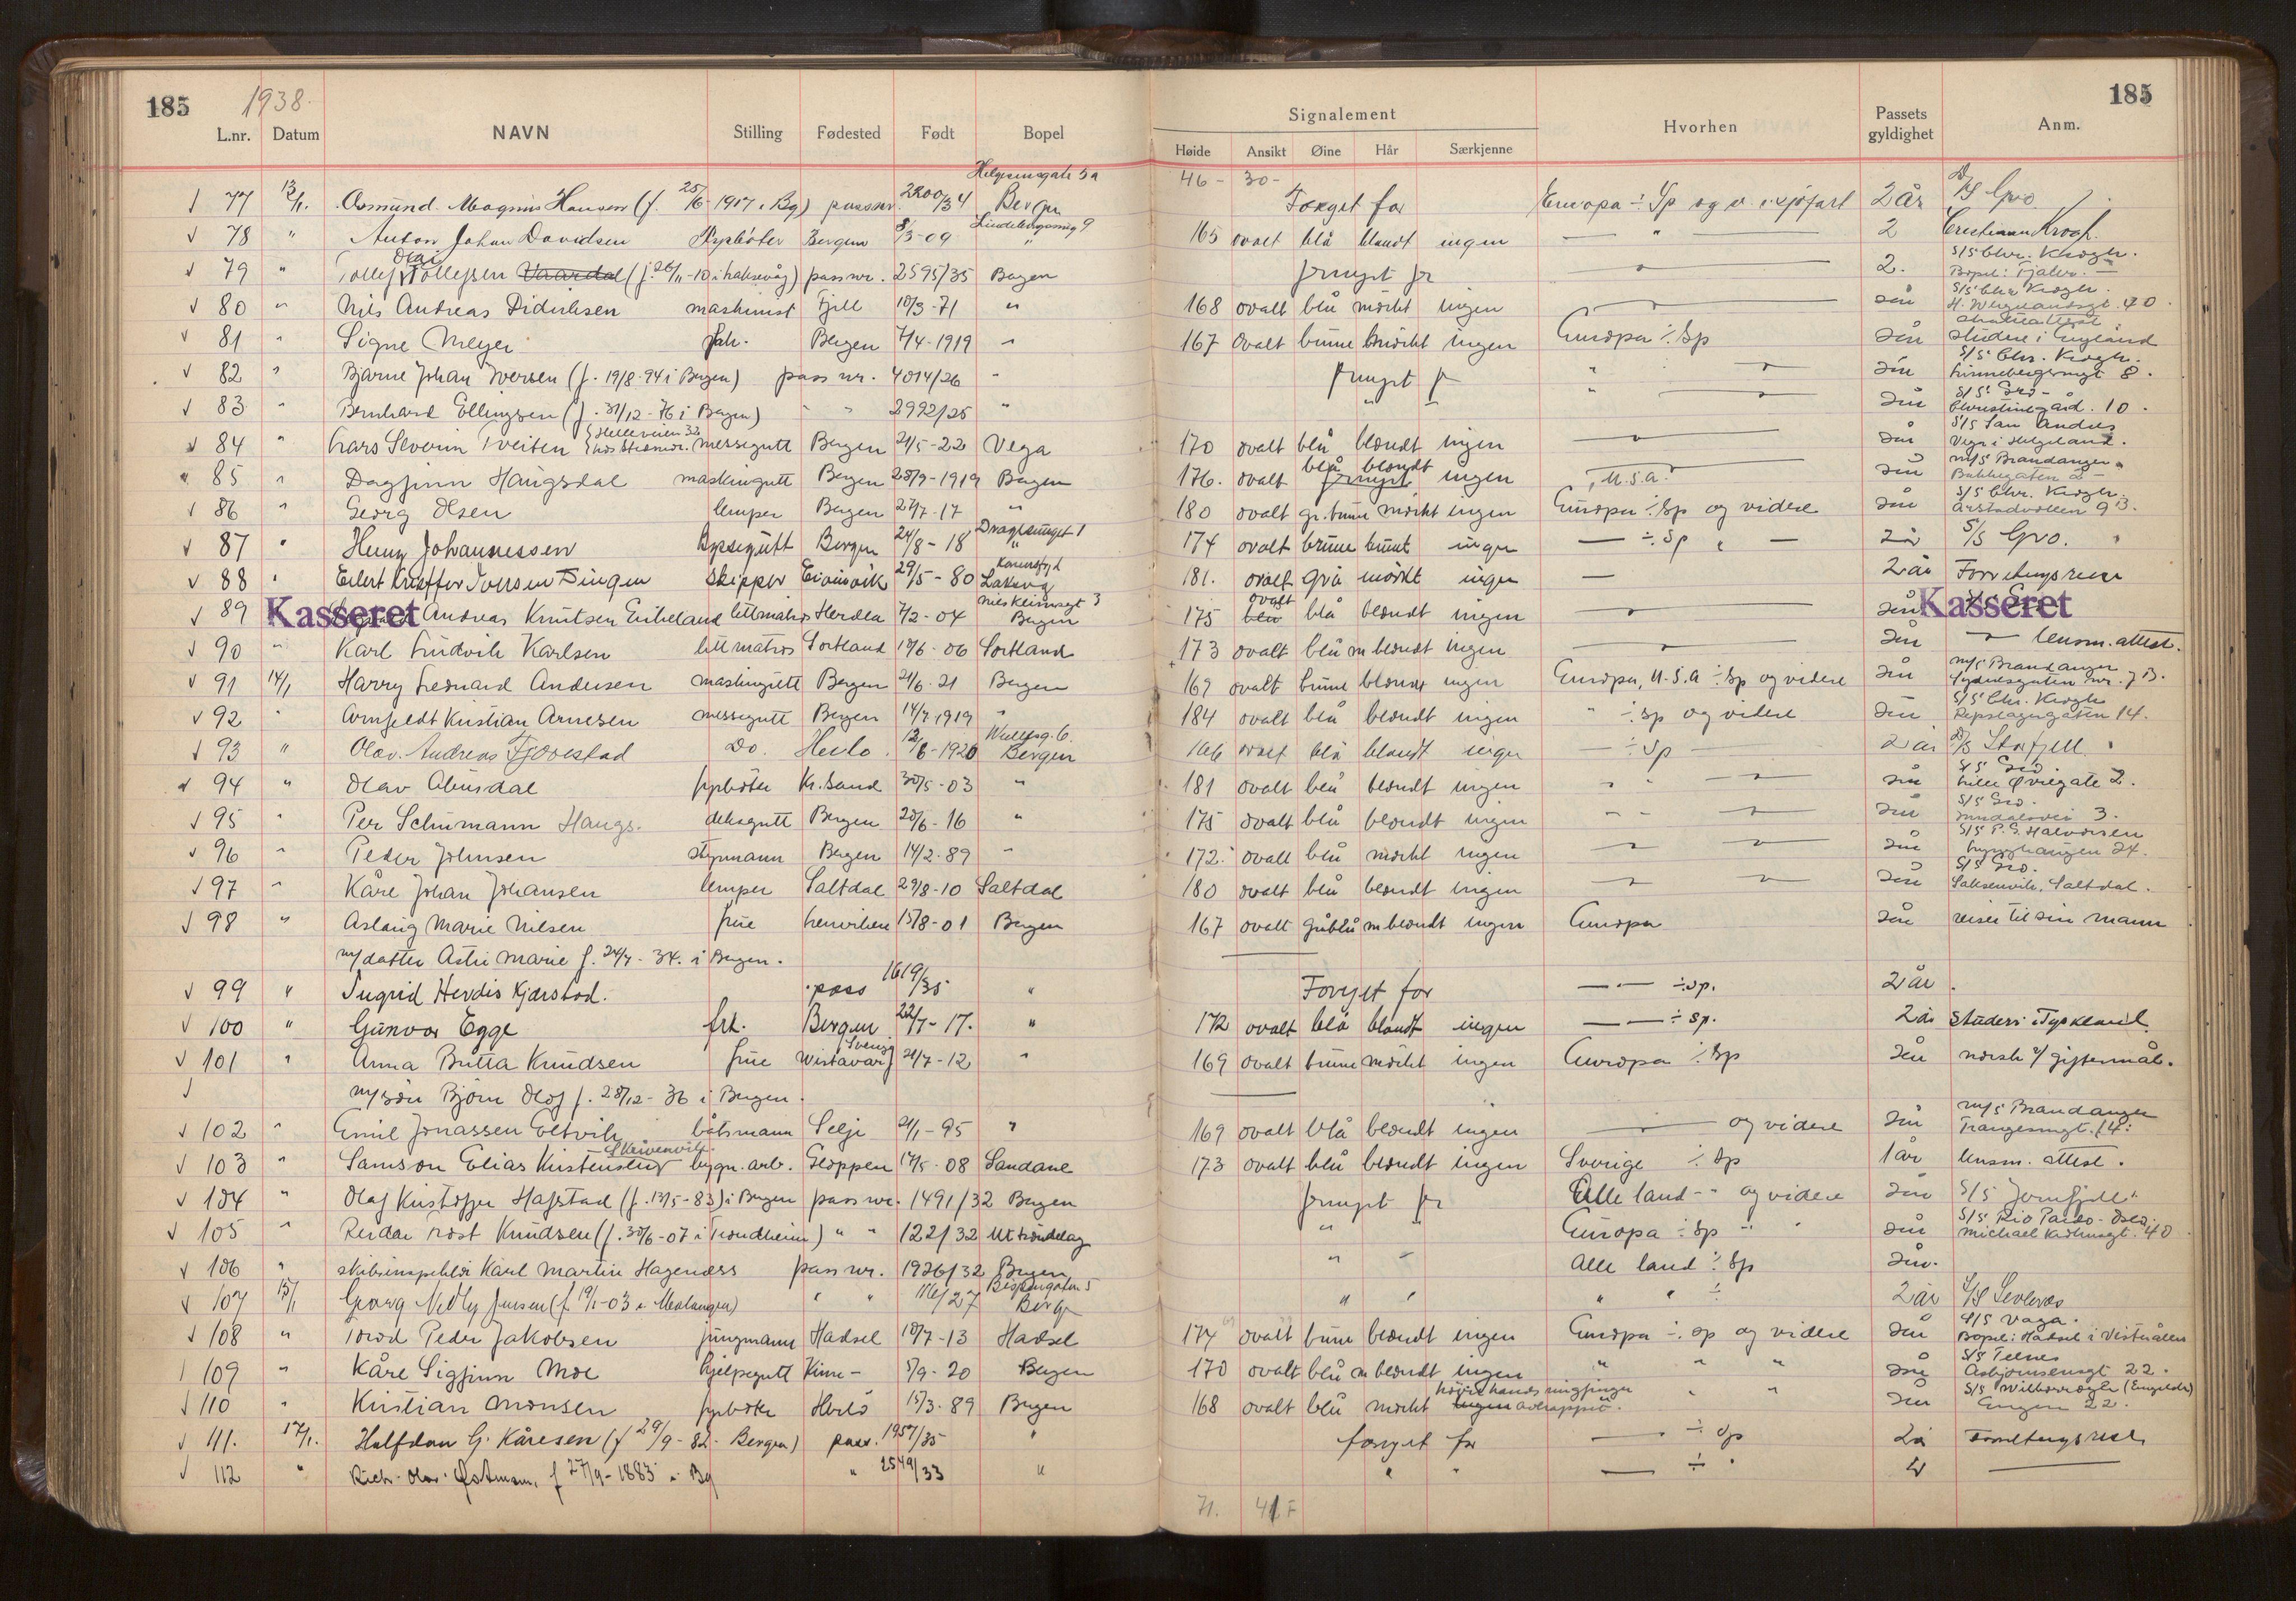 185 1938. 185
Signalement
L.nr. Datum NAVN Stilling Fødested Født Bopel Høide Ansikt Øine Hår Særkjenne Hvorhen Passets gyldighet Anm.
46 - 30 -
77 13/1. Asmund Magnus Hansen (f. 25/6 1917 i Bg) passnr. 2200/34 Helgesensgate 5a Bergen Foreget for Europa ÷ Sp og v. i sjøfart 2 år D/S Gro
78 " Anton Johan Davidsen Fyrbøter Bergen 8/3-09 " 165 ovalt blå blondt ingen — " — 2 Christian Krogh.
79 " Tollef Olai Tollefsen Vaardal (f. 26/11-10 i Laksevåg) pass nr. 2595/35 Bergen fornyet for 2. S/S Chr. Krogh. Bopel: Fjaler.
80 " Nils Andreas Didriksen maskinist Fjell 10/3-71 " 168 ovalt blå mörkt ingen 2 år S/S Chr. Krogh. H. Wergelandsgt. 40.
81 " Signe Meyer frk. Bergen 7/4-1919 " 167 Ovalt brune mörkt ingen Europa ÷ Sp 2 år studere i England
82 " Bjarne Johan Iversen (f. 19/8-94 i Bergen) pass nr. 4014/26 " fornyet for " 2 år S/S Chr. Krogh. 8.
83 " Bernhard Ellingsen (f. 31/12-76 i Bergen) " " 2992/25 " " 2 år S/S Gro - Christinegård. 10.
84 " Lars Severin Tveiten Helleveien 32 messegutt Bergen 21/5-22 Vega 170 ovalt blå blondt ingen 2 år S/S San Andres Vega i Helgeland.
85 " Dagfinn Haugsdal maskingutt Bergen 28/9-1919 Bergen 176. ovalt fornyet blå blondt ingen U.S.A. 2 år m/s Brandanger Bakkegaten 2
86 " Georg Olsen lemper Bergen 27/7-17 " 180 ovalt gr. brune mörkt ingen Europa ÷ Sp og videre 2 år S/S Chr. Krogh. Årstadvollen 9 B.
87 " Henry Johannessen Byssegutt Bergen 24/8-18 Dragesmuget 1 " 174 ovalt brune brunt ingen — ÷ Sp " — 2 år S/S Gro.
88 " Eilert Kristffer Iversen Dingen Skipper Eivinvik 29/5-80 Laksevåg 181. ovalt grå mörkt ingen — 2 år Forretnings reise
89 " Kasseret Andreas Knutsen Eikeland lettmatros Herdla 7/2-04 Nils Kleimsgt 3 Bergen 175 ovalt blå blondt ingen 2 år Kasseret
90 " Karl Ludvik Karlsen lettmatros Sortland 18/6-06 Sortland 173 ovalt blå m blondt ingen 2 år lensm. attest.
91 14/1 Harry Leonard Andersen maskingutt Bergen 21/6-21 Bergen 169 ovalt brune blondt ingen Europa, U.S.A ÷ Sp og videre 2 år m/s Brandanger Sydnesgaten nr. 7 B.
92 " Arnfeldt Kristian Arnesen messegutt Bergen 14/7-1919 " 184 ovalt blå blondt ingen " ÷ Sp og videre 2 år S/S Chr. Krogh Repslagergaten 14.
93 " Olav Andreas Fjovestad Do. Herlo. 12/6-1920 Bergen 166 ovalt blå blondt ingen — ÷ Sp — 2 år D/S Storfjell
94 " Olav Abusdal fyrböter Kr. Sand 30/5-03 " 181 ovalt blå blondt ingen 2 år S/S Gro Lille Øvregate 2.
95 " Per Schumann Haugs. deksgutt Bergen 20/6-16 " 175 ovalt blå blondt ingen 2 år S/S Gro. 3.
96 " Peder Johnsen styrmann Bergen 14/2-89 " 172. ovalt blå mörkt ingen 2 år S/S P.S. Halvorsen Lynghaugen 24.
97 " Kåre Johan Johansen lemper Saltdal 29/8-10 Saltdal 180 ovalt blå blondt ingen 2 år S/S Gro. Saksenvik, Saltdal.
98 " Aslaug Marie Nilsen frue Lenviken 15/8-01 Bergen 167 ovalt gråblå m blondt ingen Europa 2 år reiser til sin mann
m/datter Astri Marie f. 24/7-34. i Bergen.
99 " Ingrid Herdis Kjærstad. pass 1619/35 " Fornyet for — " — ÷ Sp. 2 år.
100 " Gunvor Egge frk. Bergen 22/7-17. " 172 ovalt blå blondt ingen — " — ÷ Sp. 2 år Studere i Tyskland
101 " Anna Britta Knudsen frue Wistavarf Sverig 21/7-12 " 169 ovalt brune mörkt ingen Europa ÷ Sp 2 år norsk v/ giftermål.
m/sön Björn Olof f. 28/12-36 i Bergen.
102 " Emil Jonassen Eltvik båtsmann Selje 21/1-95 " 169 ovalt blå blondt ingen og videre 2 år m/s Brandanger Trangesmugt. 14.
103 " Samson Elias bygn. arb. Gloppen 17/5-08 Sandane 173 ovalt blå blondt ingen Sverige ÷ Sp 1 år lensm. attest.
104 " Olaf Kristoffer Hafstad (f. 13/5-83) i Bergen pass nr. 1491/32 Bergen fornyet for Alle land - " og videre 2 år S/S Jernfjeld.
105 " Reidar Trost Knudsen (f. 30/6-07 i Trondheim) " " 122/32 Uttröndelag " " Europa ÷ Sp " 2 år S/S Rio Pardo - Oslo. Michael Krohnsgt. 40
106 " skibsinspektör Karl Martin Hagenæss pass nr. 1926/32 Bergen " " Alle land ÷ Sp 2 år.
107 15/1 Georg Nedby Jensen (f. 19/1-03 i Malangen) " " 116/27 Bispengaten 5 Bergen " " " " ÷ 2 år S/S Sevlevås
108 " Tord Peder Jakobsen jungmann Hadsel 18/7-13 Hadsel 174 ovalt brune blondt ingen Europa ÷ Sp og videre 2 år S/S Vaga. Bopel: Hadsel i Vesterålen
109 " Kåre Sigfinn Moe hjelpegutt Kinn - 5/9-20 Bergen 170 ovalt blå m blondt ingen " " " 2 år S/S Telnes Asbjørnsensgt 22.
110 " Kristian Monsen fyrböter Herlö 15/3-89 Bergen 168 ovalt blå mörkt ingen höirehånds ringfinger avkappet. " " 2 år Engen 22.
111. 17/1. Halfdan G. Kåresen (f 29/9-82 - Bergen) pass. 1957/35 " fornyet for — ÷ Sp 2 år Forretningsreise
112 " Rich. Olav Østman, f 27/9-1883 i Bg " 2549/33 " " " — ÷ " 2
71. 41 F